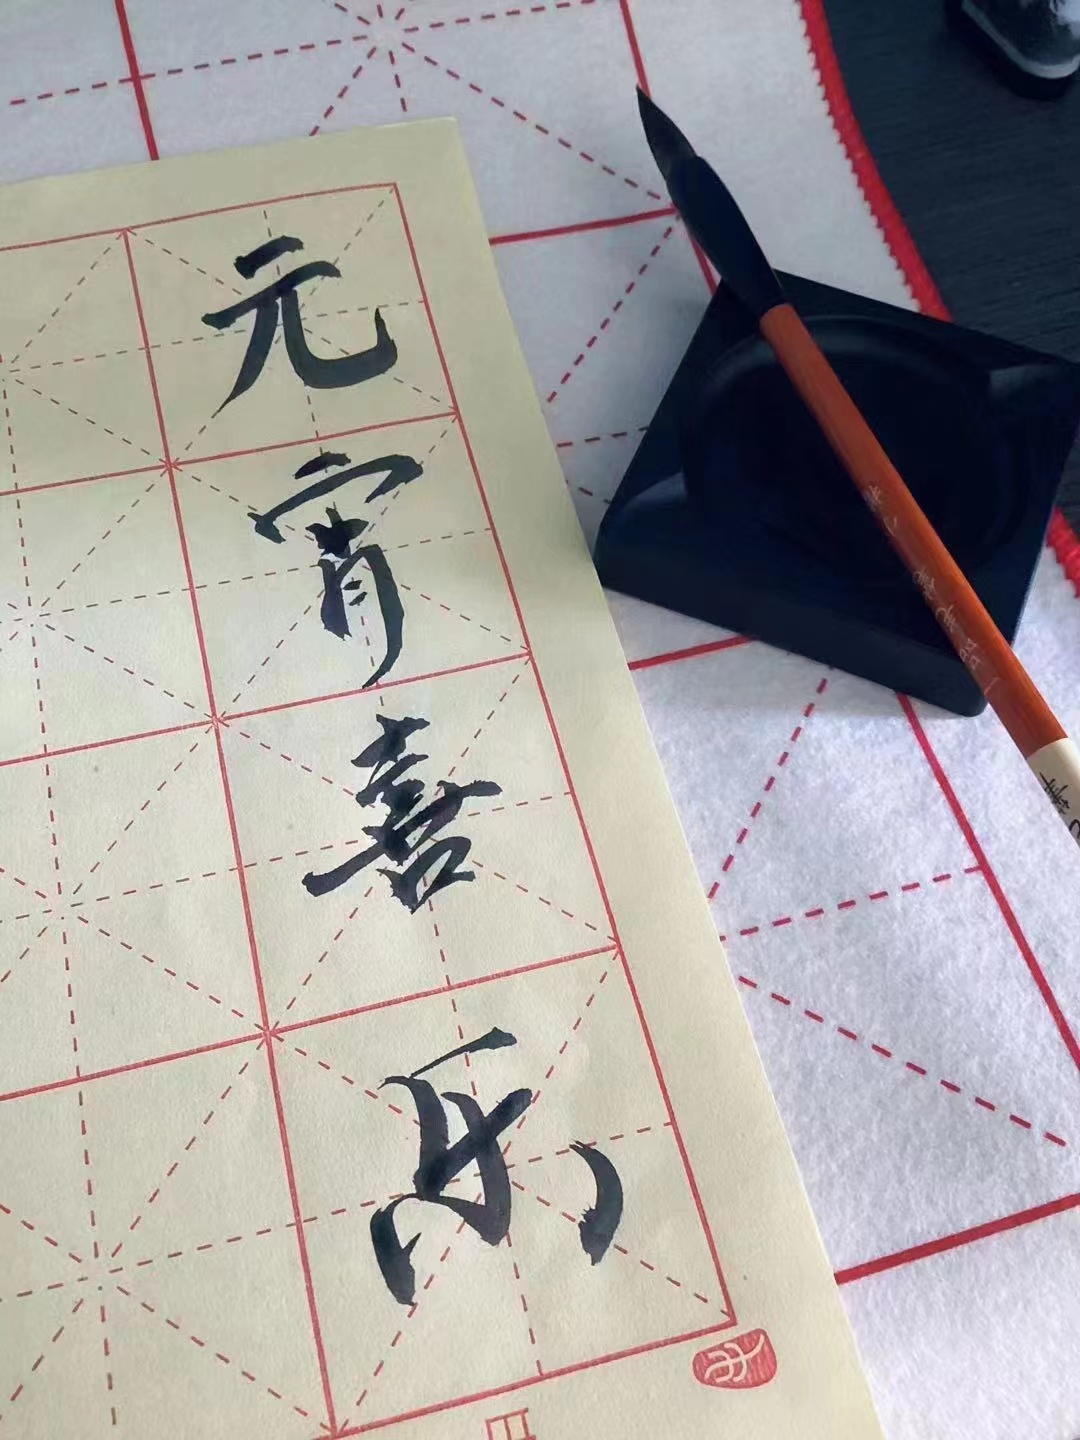 元宵喜乐